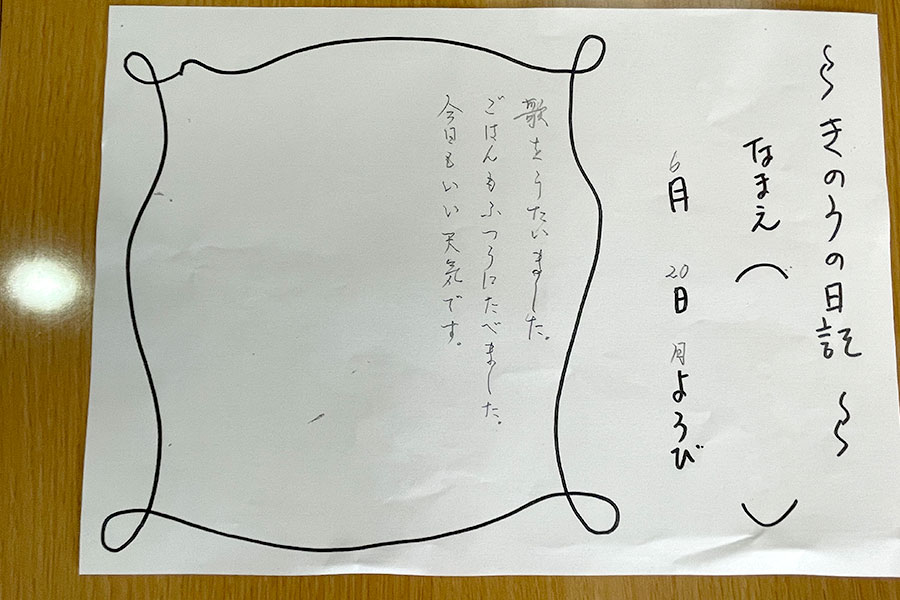 ~きのうの日記~
なまえ( )
6月 20日 月ようび
歌をうたいました。
ごはんもふつうにたべました。
今日もいい天気です。